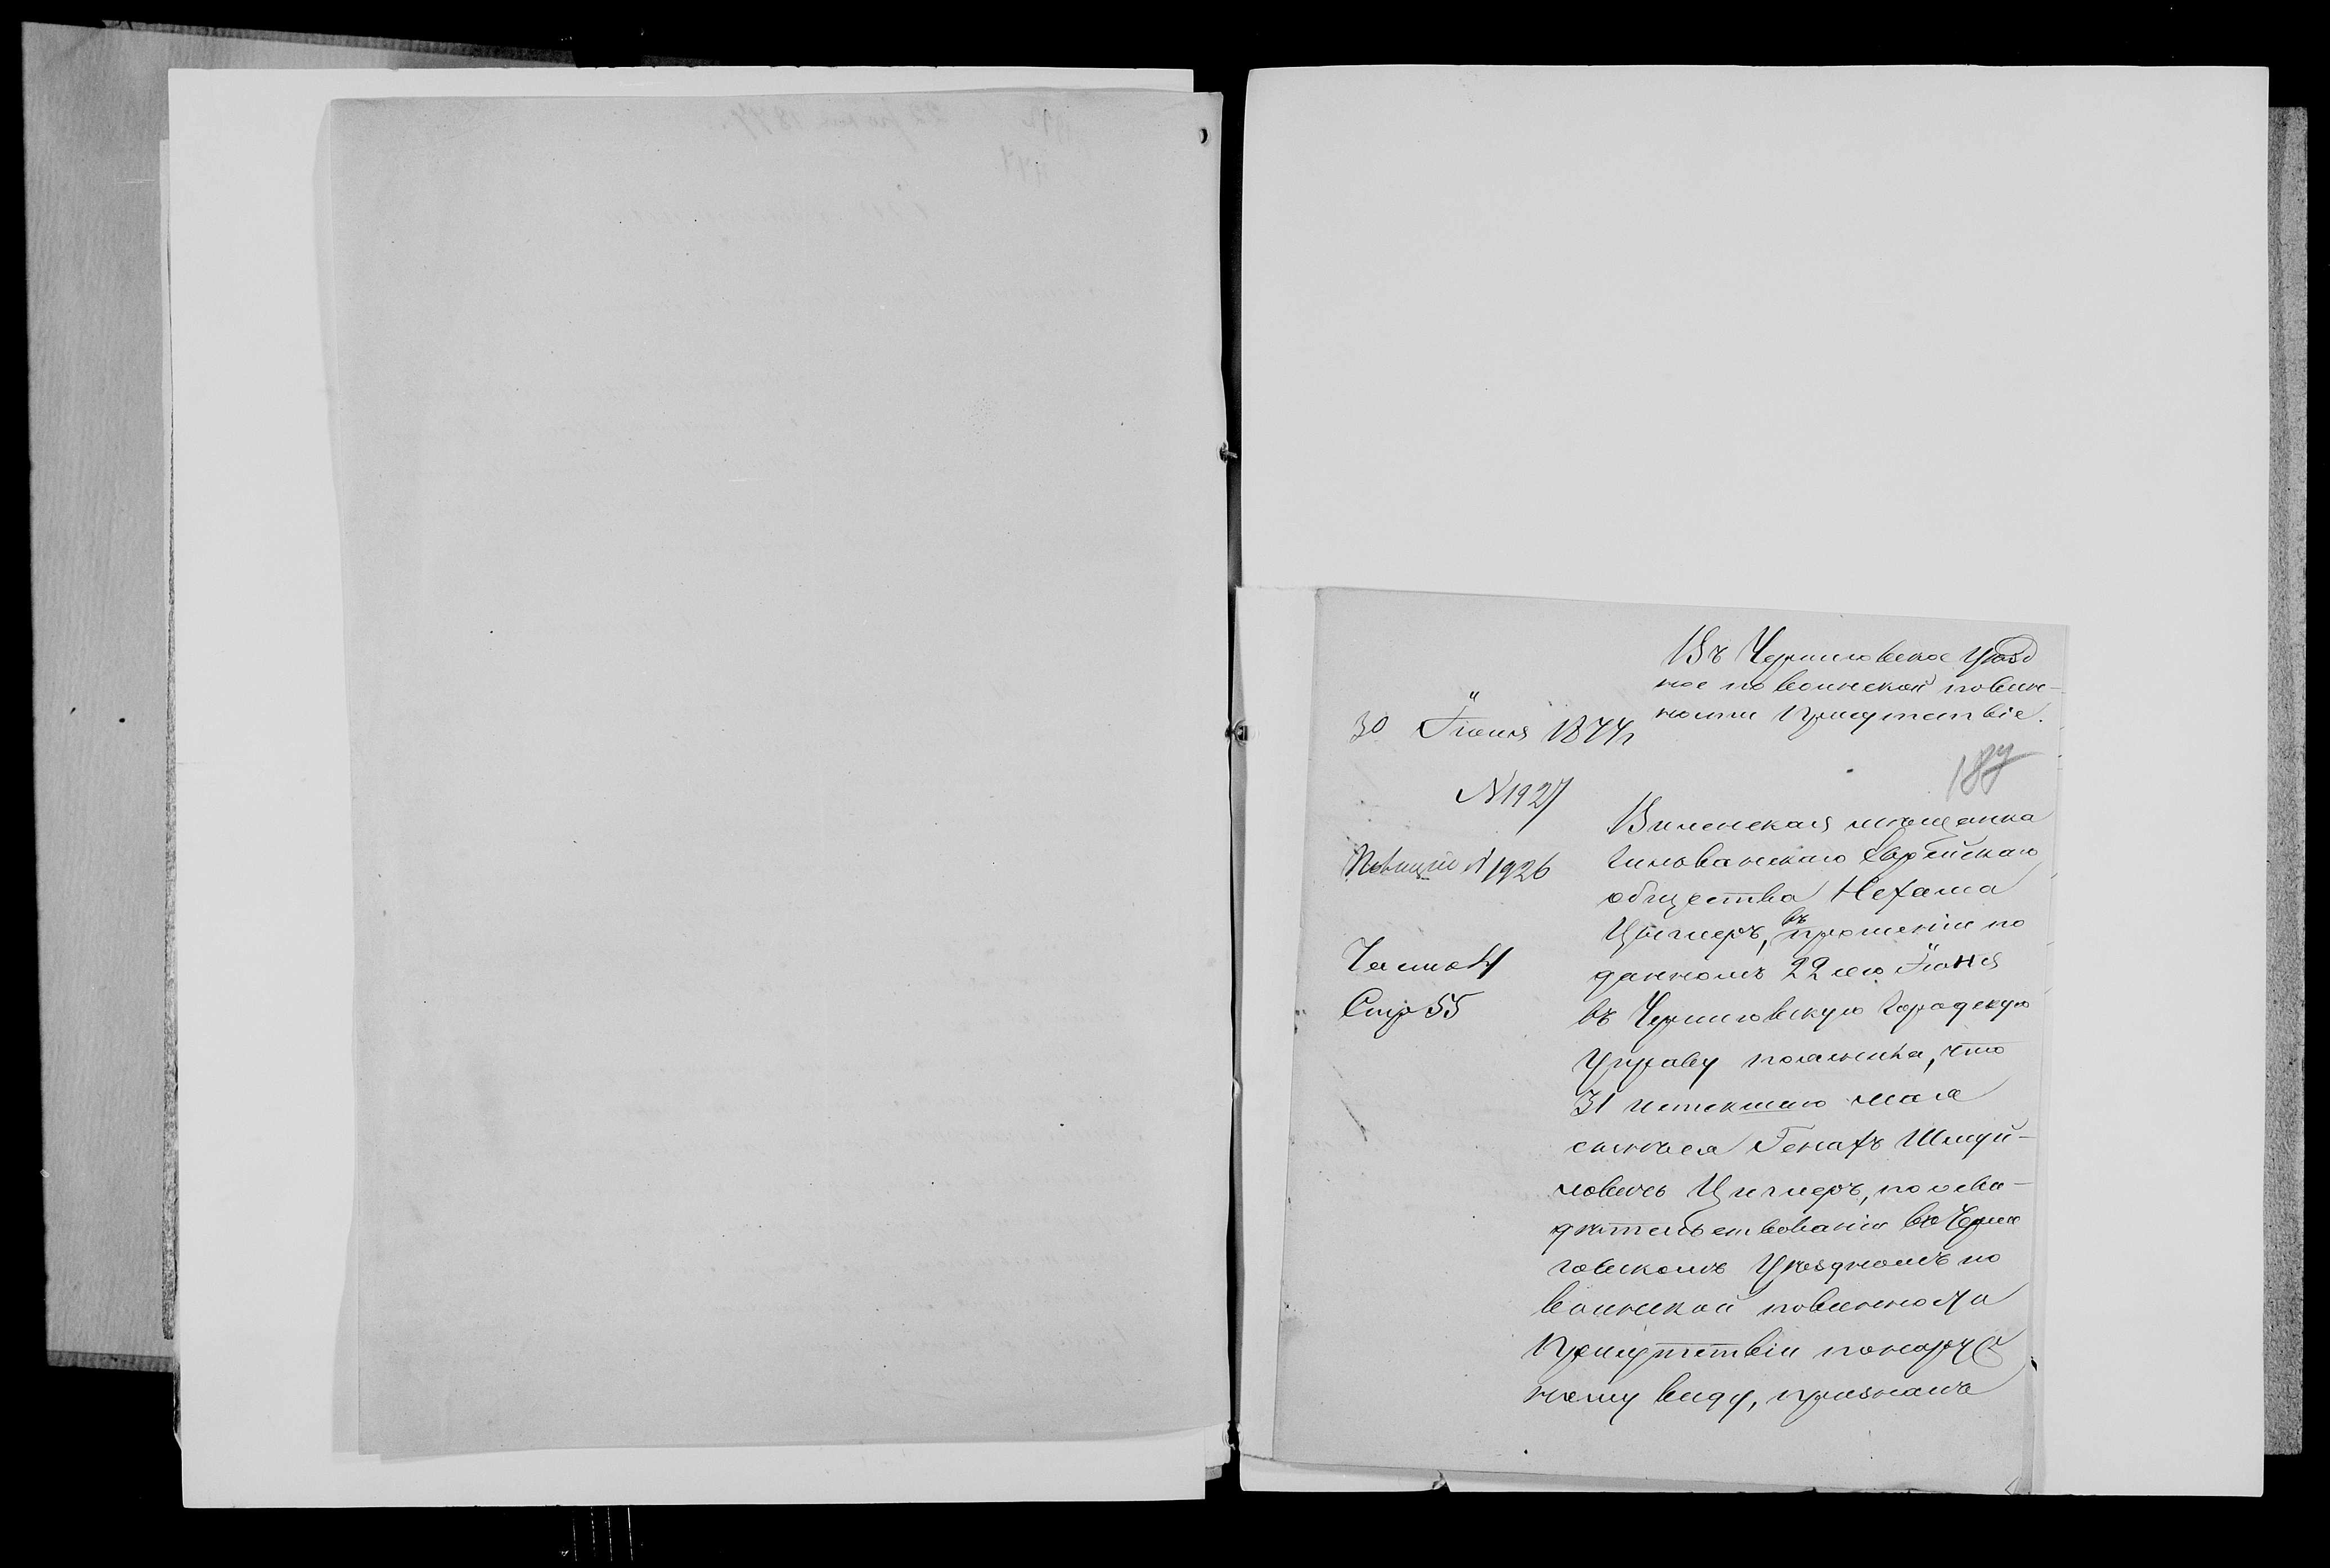 Въ Черниговское Уѣзд
ное по воинской повин-
ности Присутствіе.
30 Іюня 1877 г
187
N 1927
Виленская мѣщанка
Гильванскаго Еврейскаго
общества Нехама
Цыглеръ, въ прошеніи по
данномъ 22 сего Іюня
въ Черниговскую Городскую
Управу пояснила, что
31 истекшаго мая
сынъ ея Генахъ Шмуй-
ловичъ Циглеръ, по осви-
дѣтельствованіи въ Черни
говскомъ Уѣздномъ по
воинской повинности
Присутствіи по наруж
ному виду, признанъ
N 1926
Часть
Стр 55